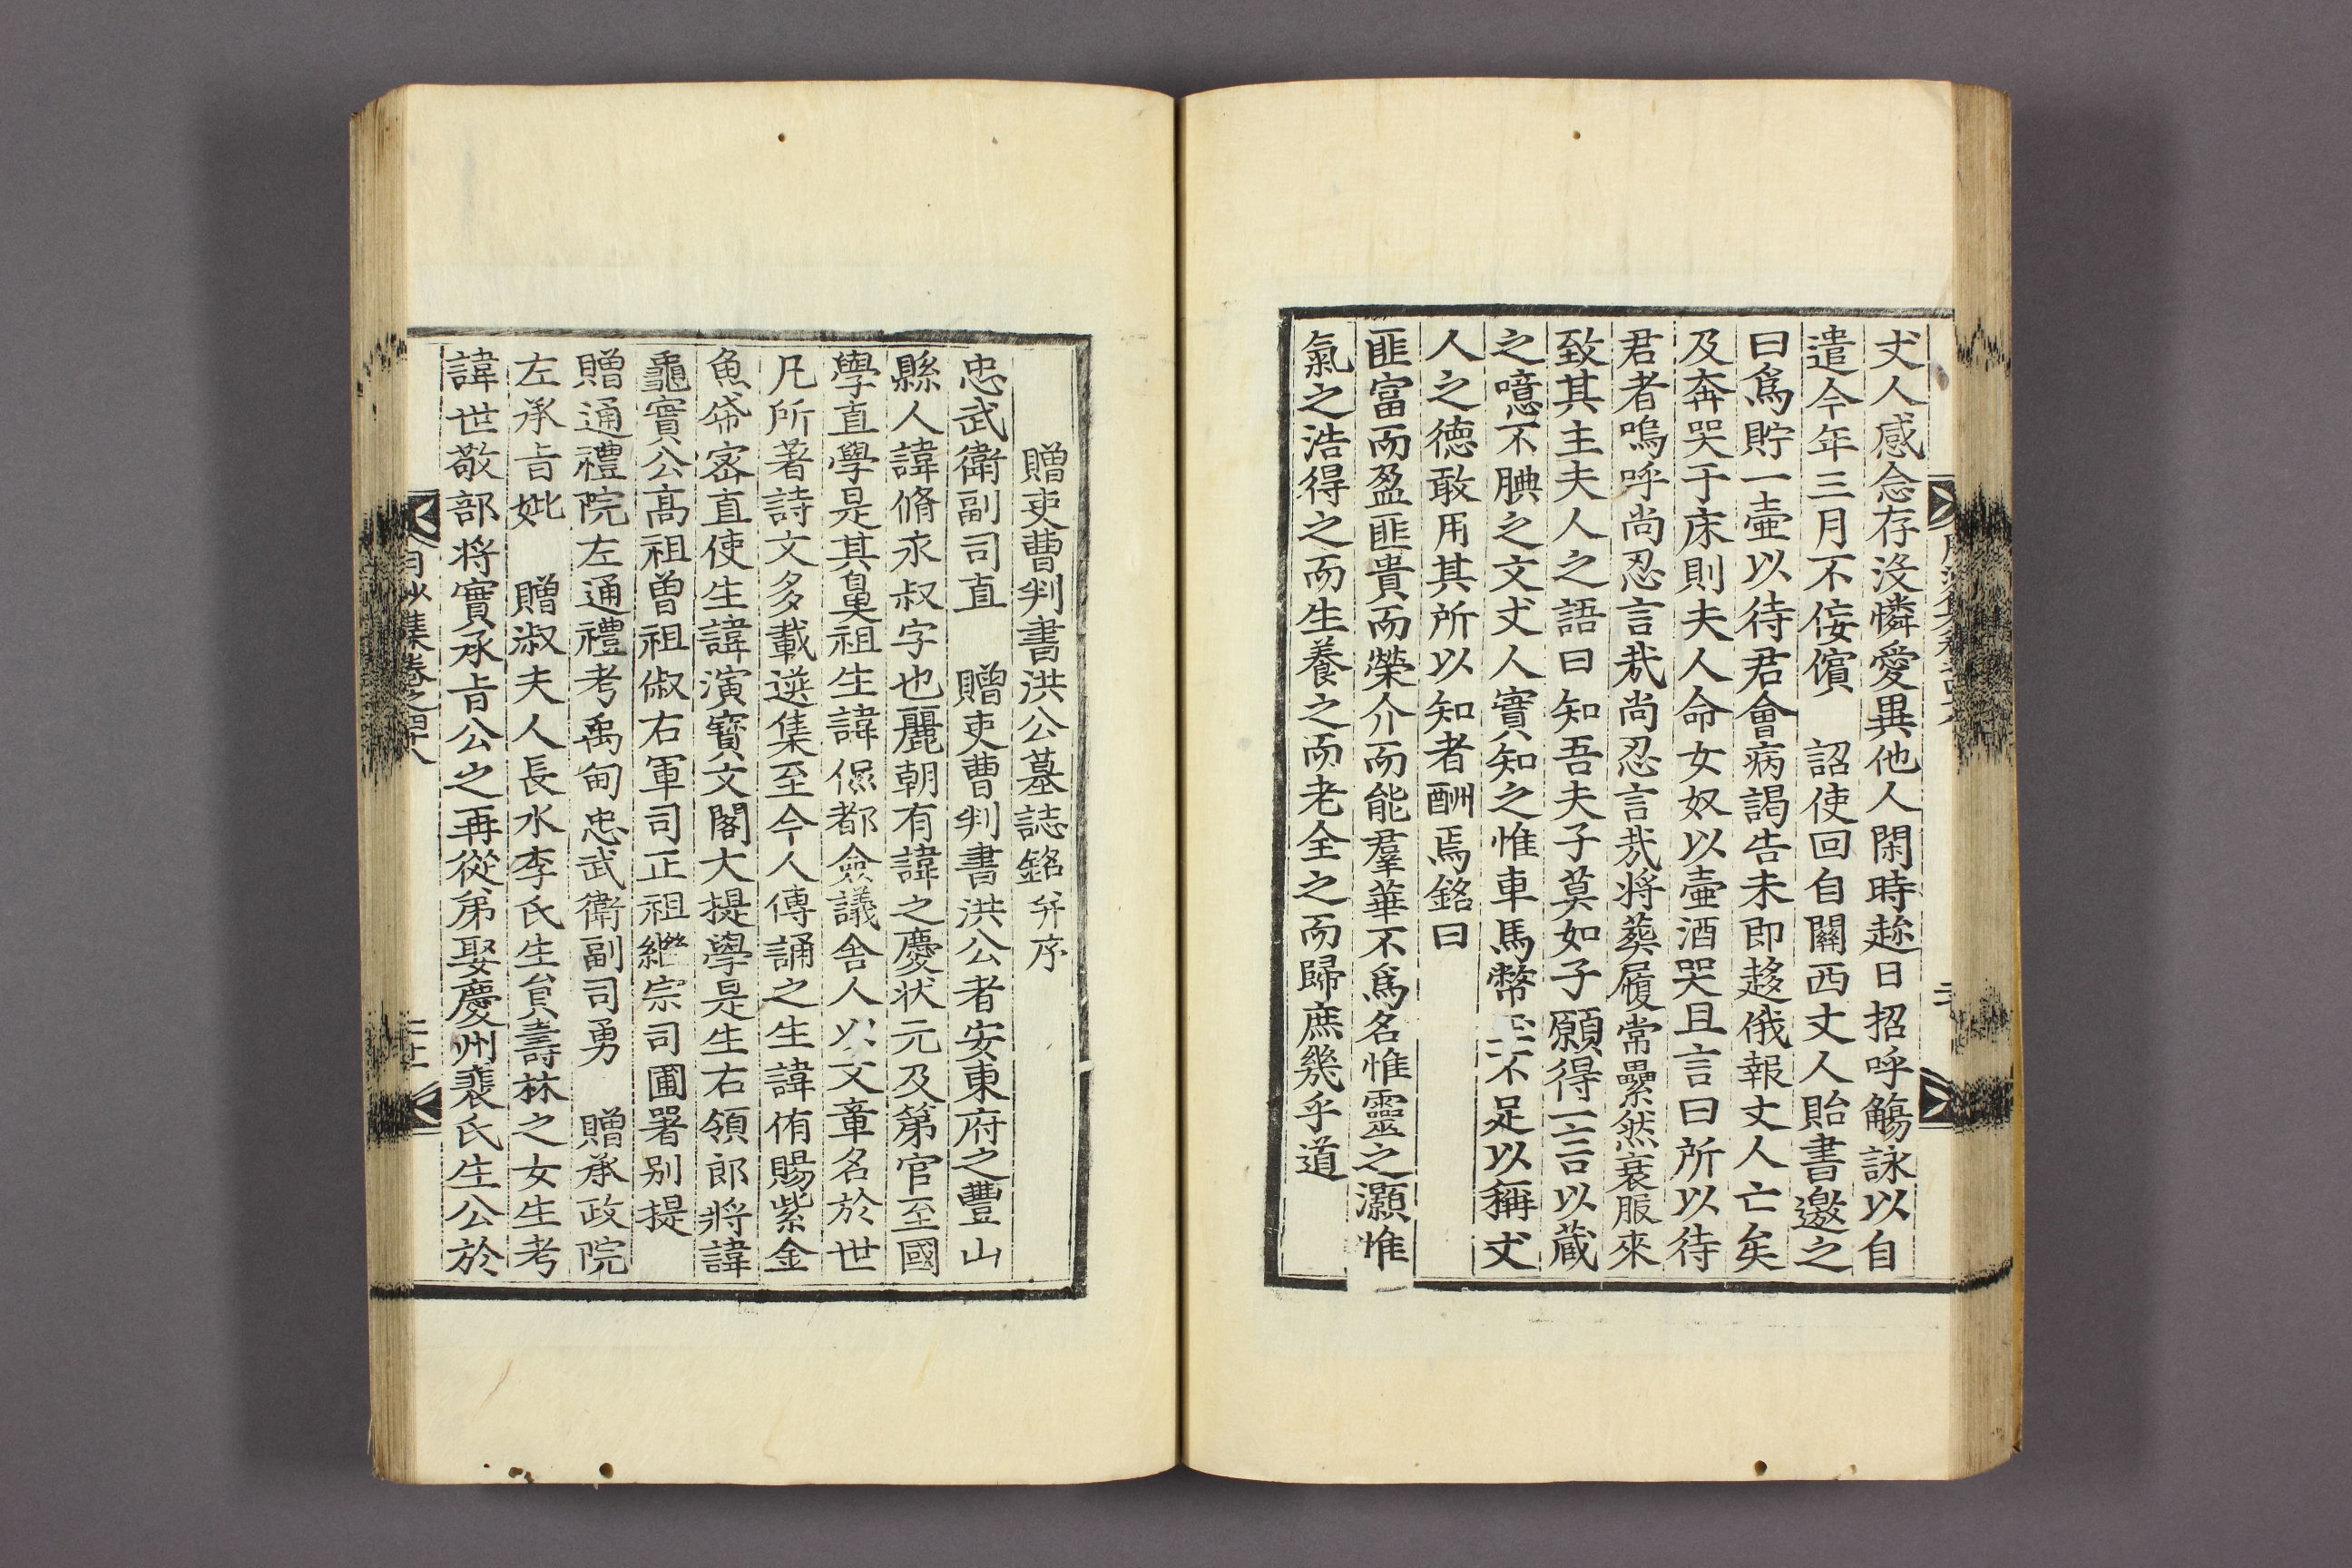 丈人感念存沒憐愛異他人閑時趂日招呼觴詠以自
遣今年三月不侫儐　詔使回自關西丈人貽書邀之
曰爲貯一壷以待君會病謁告未即趍俄報丈人亡矣
及奔哭于床則夫人命女奴以壷酒哭且言曰所以待
君者嗚呼尚忍言㢤尚忍言㢤將葬履常纍然衰服來
致其主夫人之語曰知吾夫子莫如子願得一言以蔵
之噫不腆之文丈人實知之惟車馬幣不足以稱丈
人之德敢用其所以知者酬焉銘曰
匪富而盈匪貴而榮介而能羣華不爲名惟靈之灝惟
氣之浩得之而生養之而老全之而歸庶幾乎道
贈吏曹判書洪公墓誌銘并序
忠武衛副司直　贈吏曹判書洪公者安東府之豐山
縣人諱脩永叔字也麗朝有諱之慶状元及第官至國
學直學是其鼻祖生諱侃都僉議舍人以文章名於世
凡所著詩文多載選集至今人傳誦之生諱侑賜紫金
魚帒密直使生諱演寳文閣大提學是生右領郎將諱
龜實公高祖曾祖俶右軍司正祖繼宗司圃署別提
贈通禮院左通禮考禹甸忠武衛副司勇　贈承政院
左承旨妣　贈淑夫人長水李氏生貟壽林之女生考
諱世敬部將實承旨公之再從弟娶慶州裴氏生公於
月沙集卷之四十八